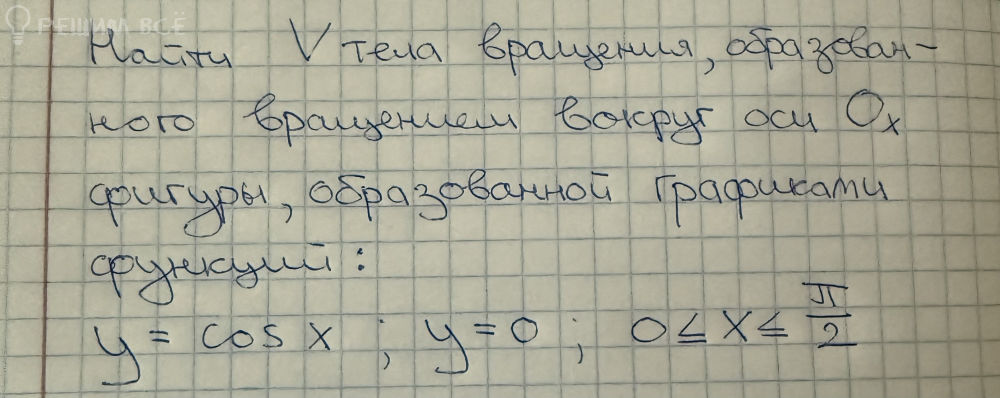 РЕШИМ ВСЁ
Найти V тела вращения, образован-
ного вращением вокруг оси Ox
фигуры, образованной графиками
функций:
y = cos x ; y = 0 ; 0 ≤ x ≤ π/2